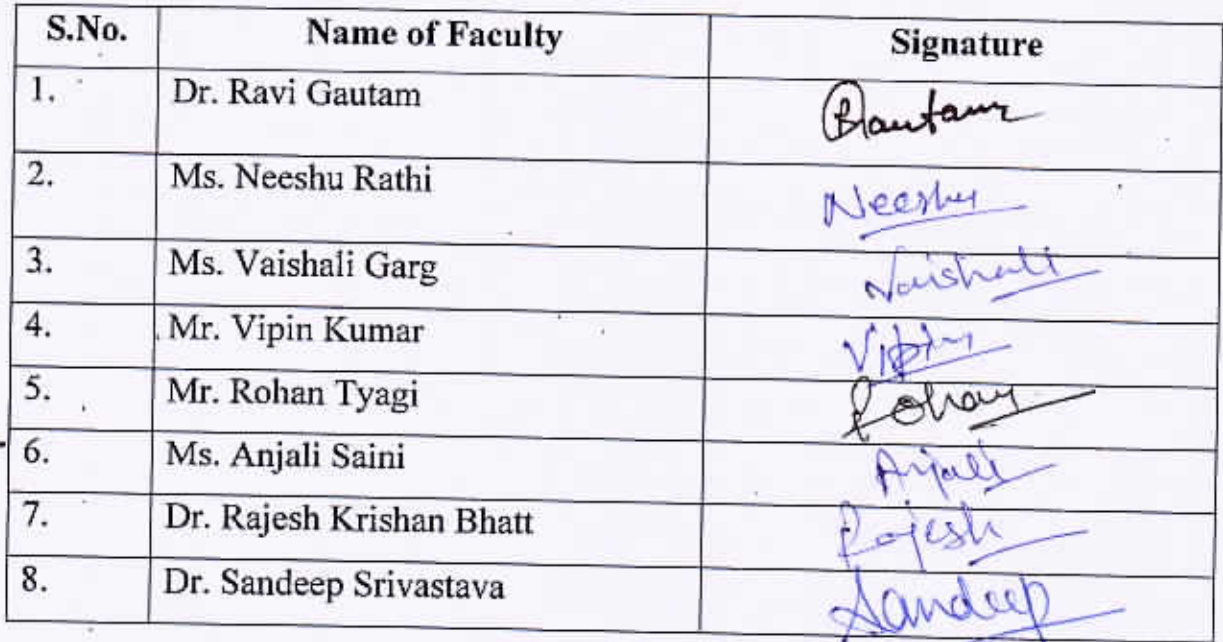 S.No. Name of Faculty Signature
1. Dr. Ravi Gautam RGautam
2. Ms. Neeshu Rathi Neeshu
3. Ms. Vaishali Garg Vaishali
4. Mr. Vipin Kumar Vipin
5. Mr. Rohan Tyagi Rohan
6. Ms. Anjali Saini Anjali
7. Dr. Rajesh Krishan Bhatt Rajesh
8. Dr. Sandeep Srivastava Sandeep